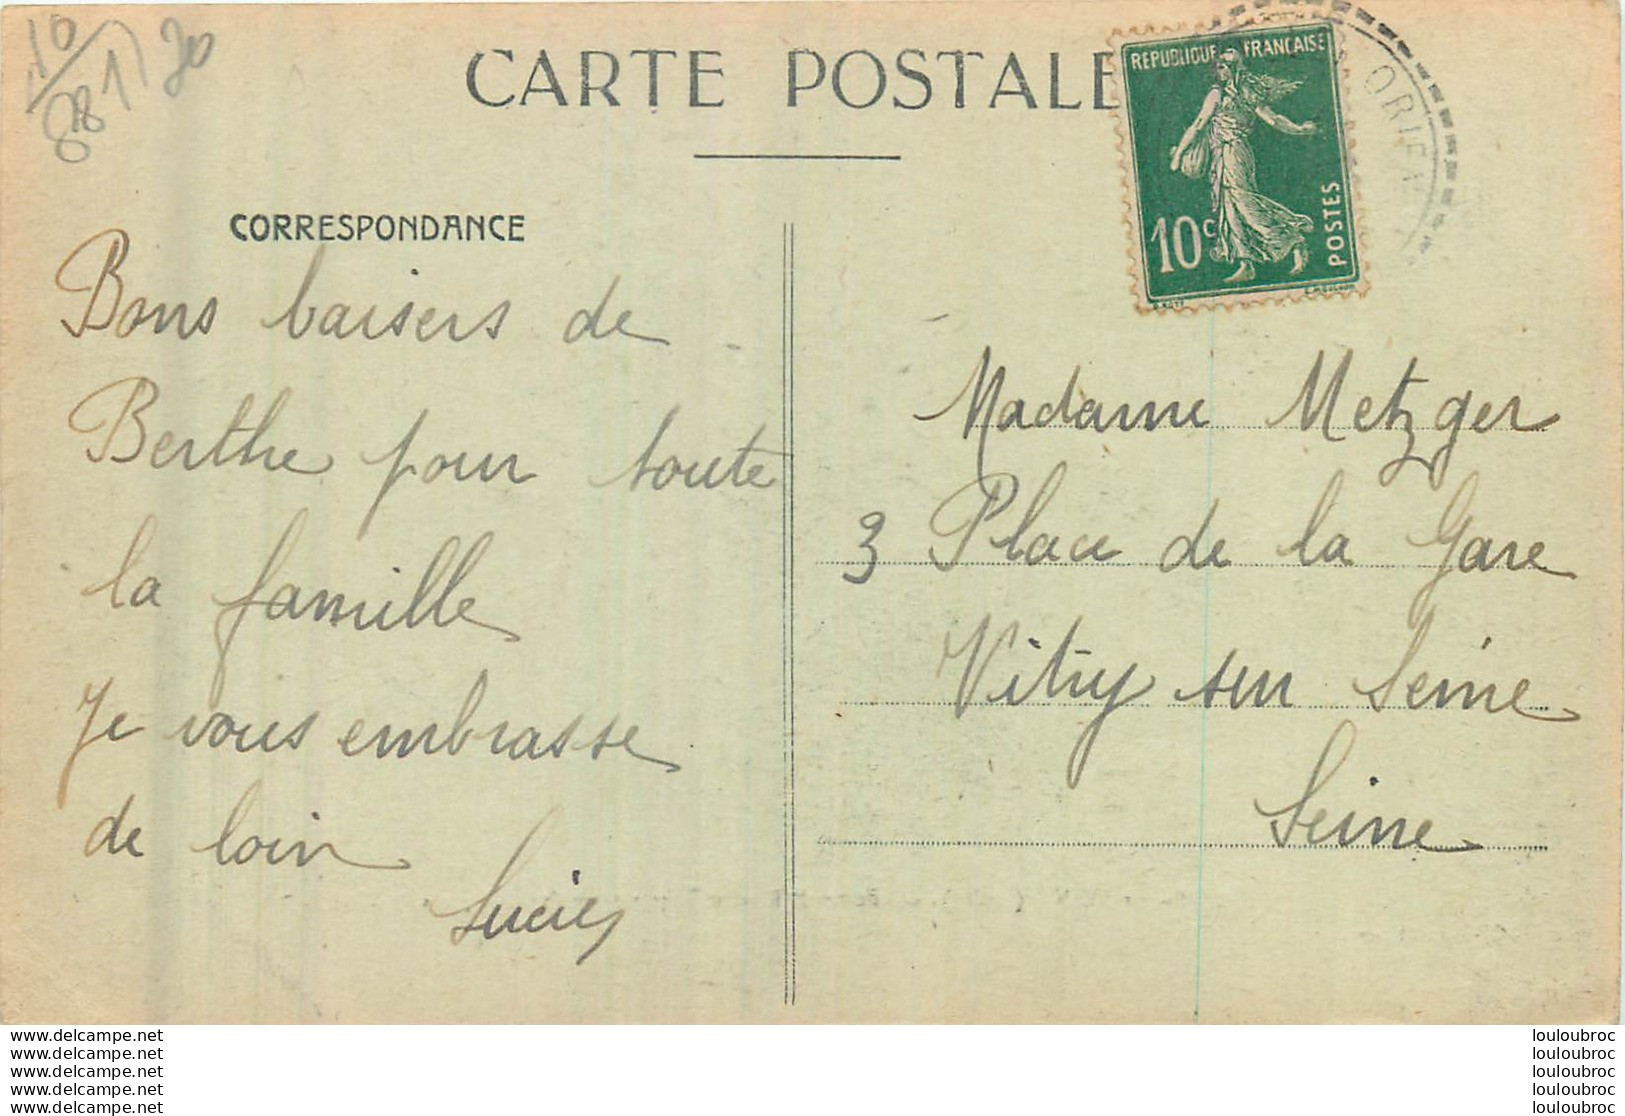 10
881) 20
CARTE POSTALE
REPUBLIQUE FRANCAISE
10c
POSTES
ORIEN
CORRESPONDANCE
Bons baisers de
Berthe pour toute
la famille
Je vous embrasse
de loin
Lucie
Madame Metzger
3 Place de la Gare
Vitry sur Seine
Seine
www.delcampe.net
www.delcampe.net
www.delcampe.net
www.delcampe.net
www.delcampe.net
louloubroc
louloubroc
louloubroc
louloubroc
louloubroc